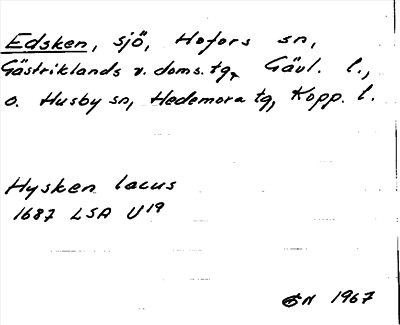 Edsken, sjö, Hofors sn,
Gästriklands v. doms. tg, Gävl. l.,
o. Husby sn, Hedemora tg, Kopp. l.
Hysken lacus
1687 LSA U19
1967